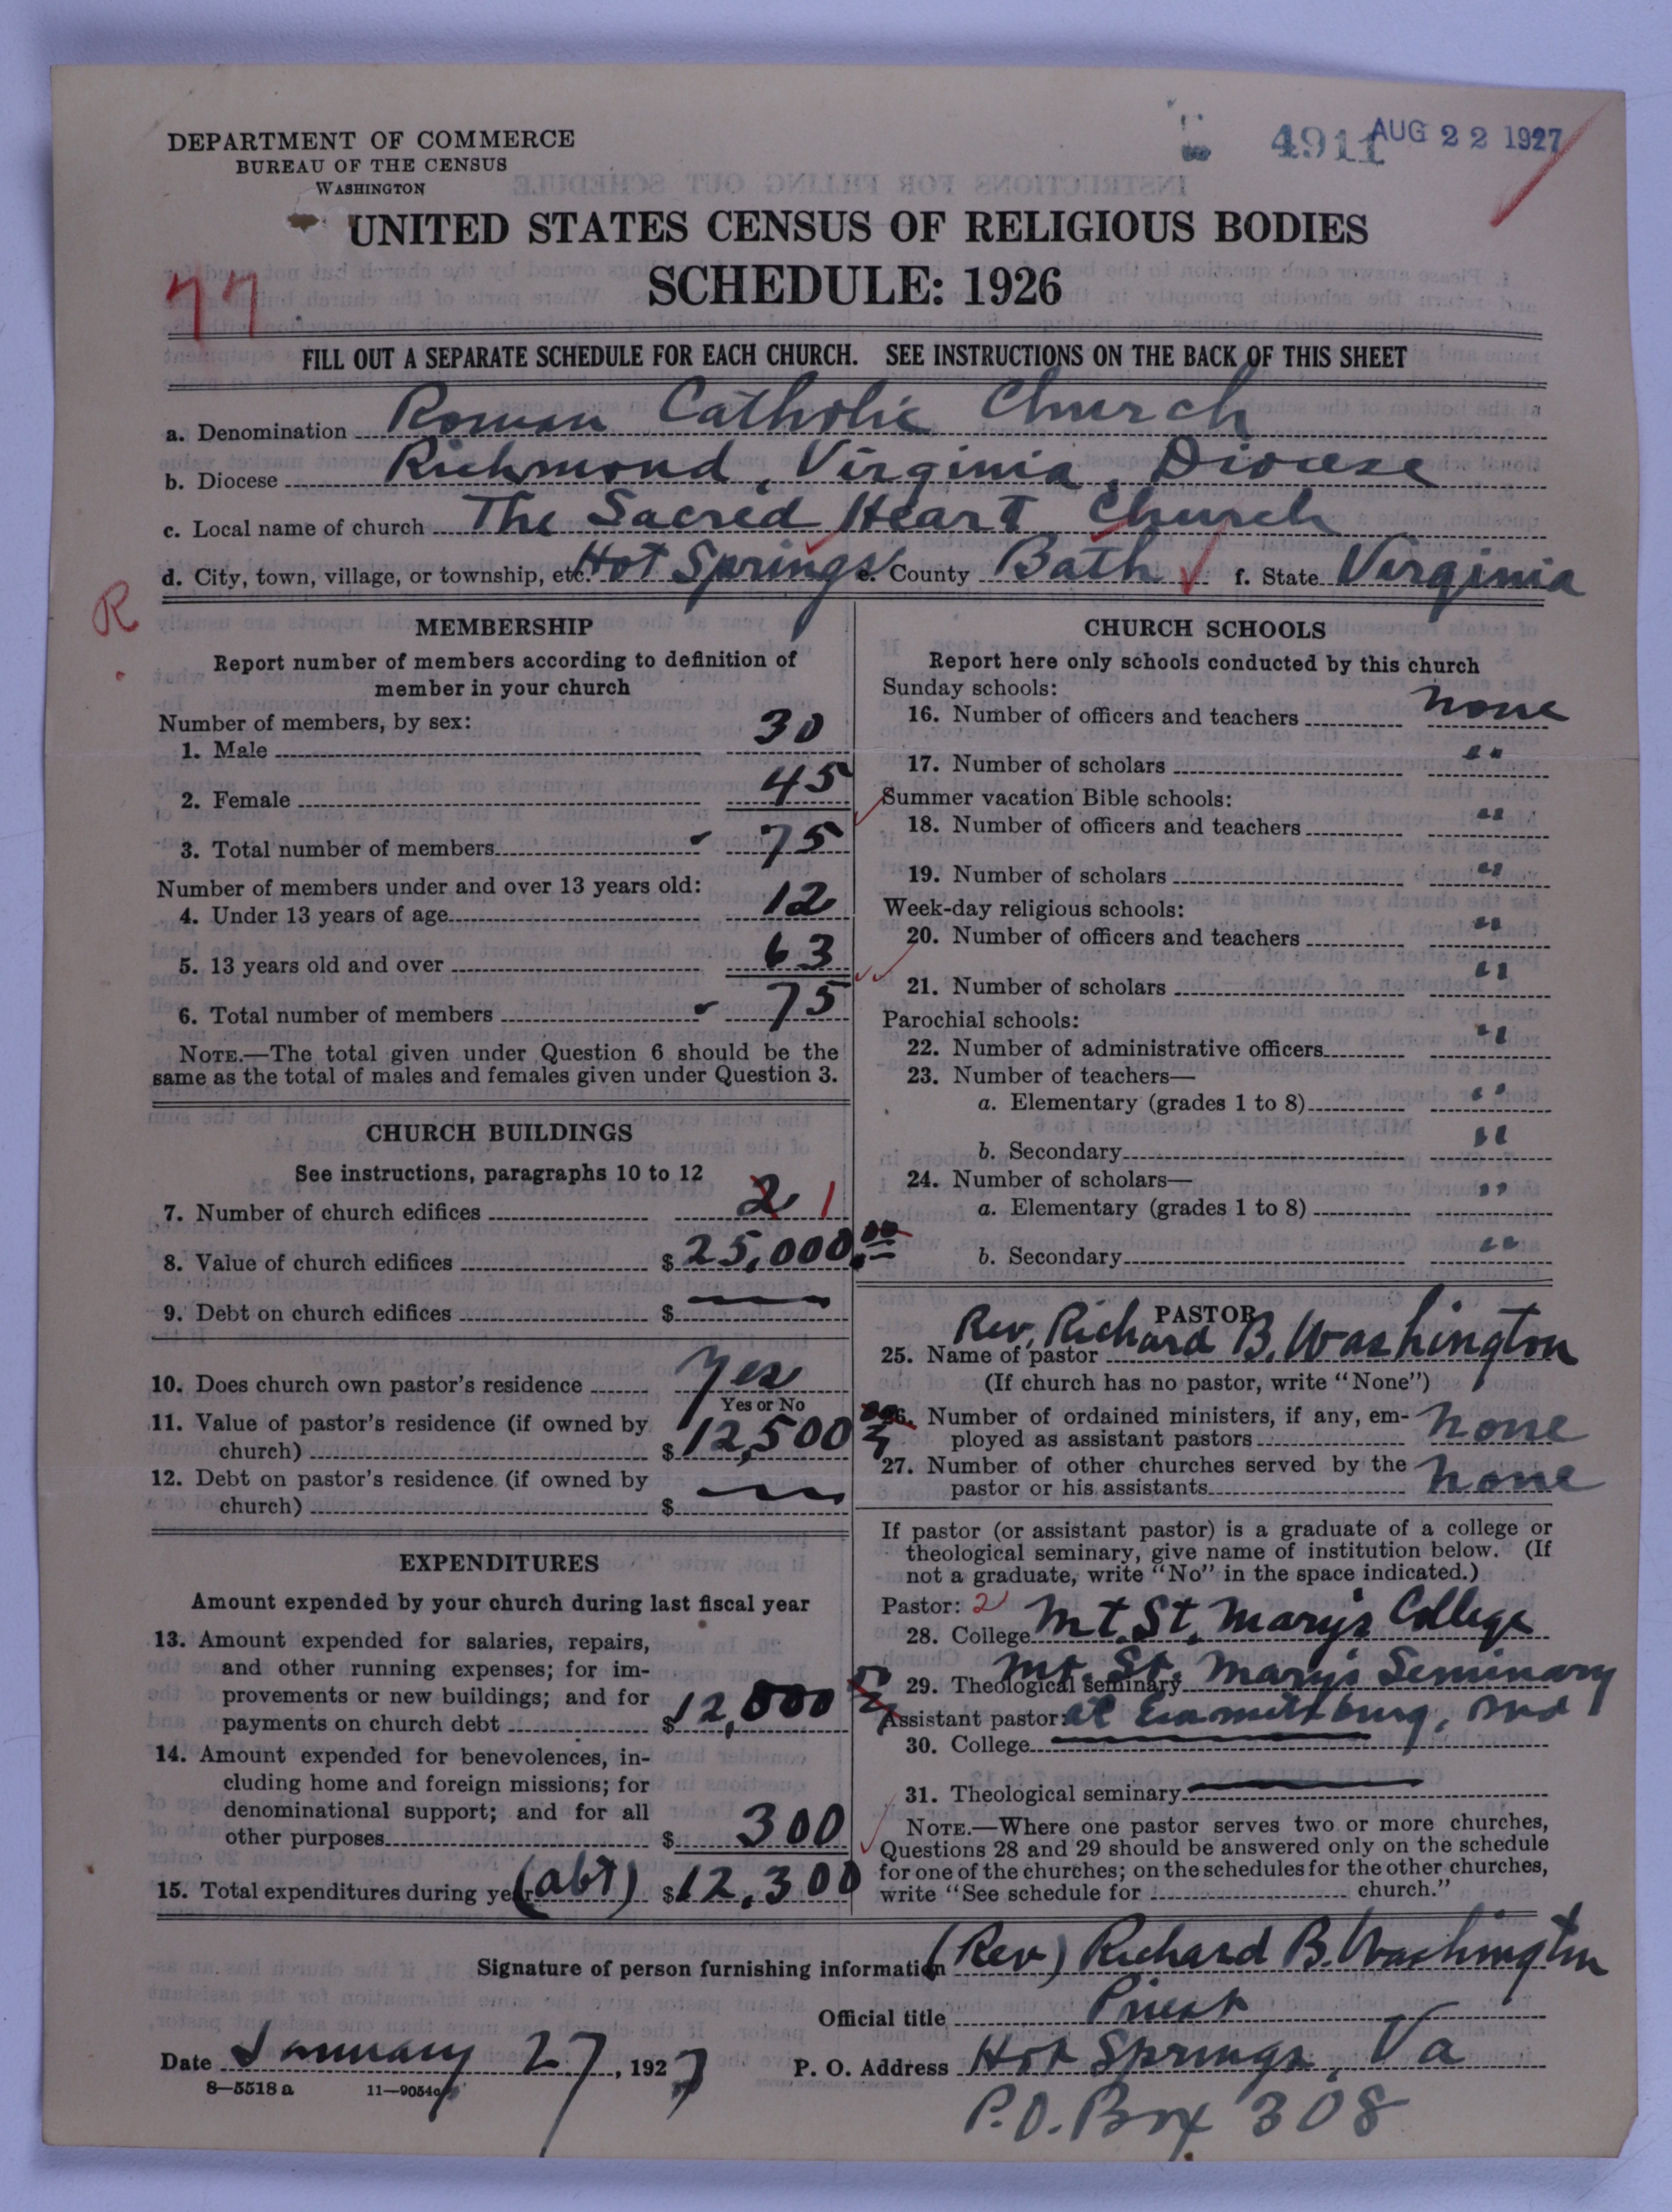 DEPARTMENT OF COMMERCE
BUREAU OF THE CENSUS
WASHINGTON
4911 AUG 22 1927
UNITED STATES CENSUS OF RELIGIOUS BODIES
SCHEDULE: 1926
77
FILL OUT A SEPARATE SCHEDULE FOR EACH CHURCH. SEE INSTRUCTIONS ON THE BACK OF THIS SHEET
a. Denomination Roman Catholic Church
b. Diocese Richmond, Virginia, Diocese
c. Local name of church The Sacred Heart Church
d. City, town, village, or township, etc. Hot Springs e. County Bath f. State Virginia
R
MEMBERSHIP
Report number of members according to definition of
member in your church
Number of members, by sex:
1. Male 30
2. Female 45
3. Total number of members 75
Number of members under and over 13 years old:
4. Under 13 years of age 12
5. 13 years old and over 63
6. Total number of members 75
NOTE.—The total given under Question 6 should be the
same as the total of males and females given under Question 3.
CHURCH BUILDINGS
See instructions, paragraphs 10 to 12
7. Number of church edifices 2 1
8. Value of church edifices $25,000.00
9. Debt on church edifices $ —
10. Does church own pastor's residence Yes
Yes or No
11. Value of pastor's residence (if owned by
church) $12,500 00
12. Debt on pastor's residence (if owned by
church) $ —
EXPENDITURES
Amount expended by your church during last fiscal year
13. Amount expended for salaries, repairs,
and other running expenses; for im-
provements or new buildings; and for
payments on church debt $12,000
14. Amount expended for benevolences, in-
cluding home and foreign missions; for
denominational support; and for all
other purposes $300
15. Total expenditures during year (abt) $12,300
CHURCH SCHOOLS
Report here only schools conducted by this church
Sunday schools:
16. Number of officers and teachers none
17. Number of scholars "
Summer vacation Bible schools:
18. Number of officers and teachers "
19. Number of scholars "
Week-day religious schools:
20. Number of officers and teachers "
21. Number of scholars "
Parochial schools:
22. Number of administrative officers "
23. Number of teachers—
a. Elementary (grades 1 to 8) "
b. Secondary "
24. Number of scholars—
a. Elementary (grades 1 to 8) "
b. Secondary "
PASTOR
25. Name of pastor Rev. Richard B. Washington
(If church has no pastor, write "None")
26. Number of ordained ministers, if any, em-
ployed as assistant pastors none
27. Number of other churches served by the
pastor or his assistants none
If pastor (or assistant pastor) is a graduate of a college or
theological seminary, give name of institution below. (If
not a graduate, write "No" in the space indicated.)
Pastor: 2
28. College Mt. St. Mary's College
29. Theological seminary Mt. St. Mary's Seminary
Assistant pastor: at Emmittsburg, Md
30. College —
31. Theological seminary —
NOTE.—Where one pastor serves two or more churches,
Questions 28 and 29 should be answered only on the schedule
for one of the churches; on the schedules for the other churches,
write "See schedule for church."
Signature of person furnishing information (Rev) Richard B. Washington
Official title Priest
Date January 27, 1927 P. O. Address Hot Springs, Va
8—5518a 11—9054a
P.O. Box 308